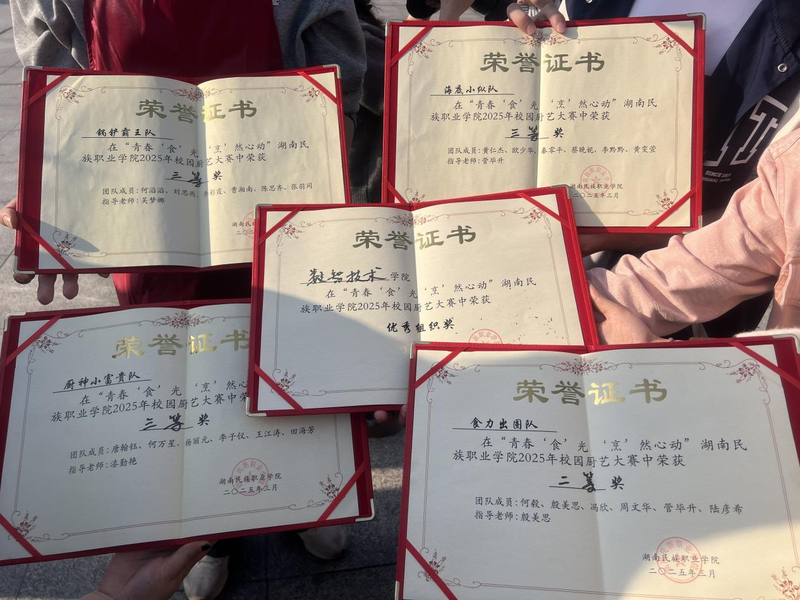 荣誉证书
锅铲霸王队
在“青春‘食’光 ‘烹’然心动”湖南民
族职业学院2025年校园厨艺大赛中荣获
三等奖
团队成员：何滔滔、刘思雨、彩霞、曹湘南、陈思齐、张羽同
指导老师：吴梦娜
湖南
二〇二
荣誉证书
海底小纵队
在“青春‘食’光 ‘烹’然心动”湖南民
族职业学院2025年校园厨艺大赛中荣获
三等奖
团队成员：黄仁杰、欧少华、秦零平、蔡晚妮、李黔黔、黄雯莹
指导老师：管毕升
湖南民族职业学院
二〇二五年三月
荣誉证书
数智技术学院
在“青春‘食’光 ‘烹’然心动”湖南民
族职业学院2025年校园厨艺大赛中荣获
优秀组织奖
荣誉证书
厨神小富贵队
在“青春‘食’光 ‘烹’然
族职业学院2025年校园厨艺大
三等奖
团队成员：唐翰钰、何万星、杨丽元、李子仪、王江涛、田海芳
指导老师：洛勤艳
湖南民族职业学院
二〇二五年三月
荣誉证书
食力出圈队
在“青春‘食’光 ‘烹’然心动”湖南民
族职业学院2025年校园厨艺大赛中荣获
三等奖
团队成员：何毅、殷美思、冯欣、周文华、管毕升、陆彦希
指导老师：殷美思
湖南民族职业学院
二〇二五年三月